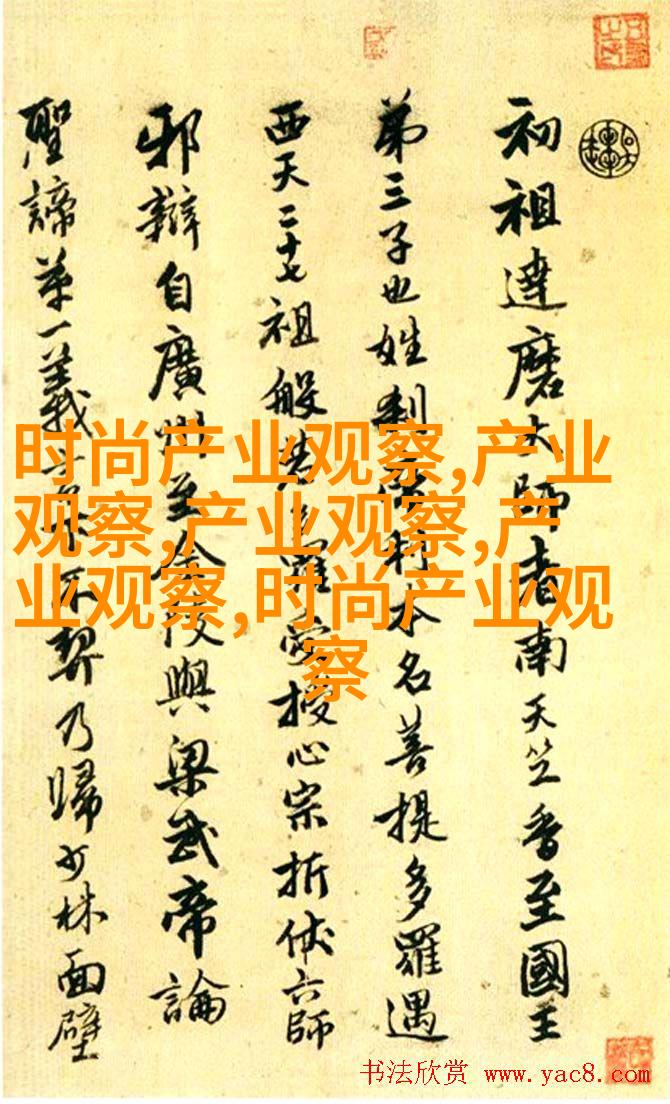 初祖達磨大師者南天竺香至國王
第三子也姓刹帝利本名菩提多羅遇
西天二十七祖般若多羅密授心宗折伏六師
邪辯自廣州至金陵與梁武帝論
聖諦第一義不契乃歸少林面壁
时尚产业观察,产业
观察,产业观察,产
业观察,时尚产业观
察
书法欣赏 www.yac8.com